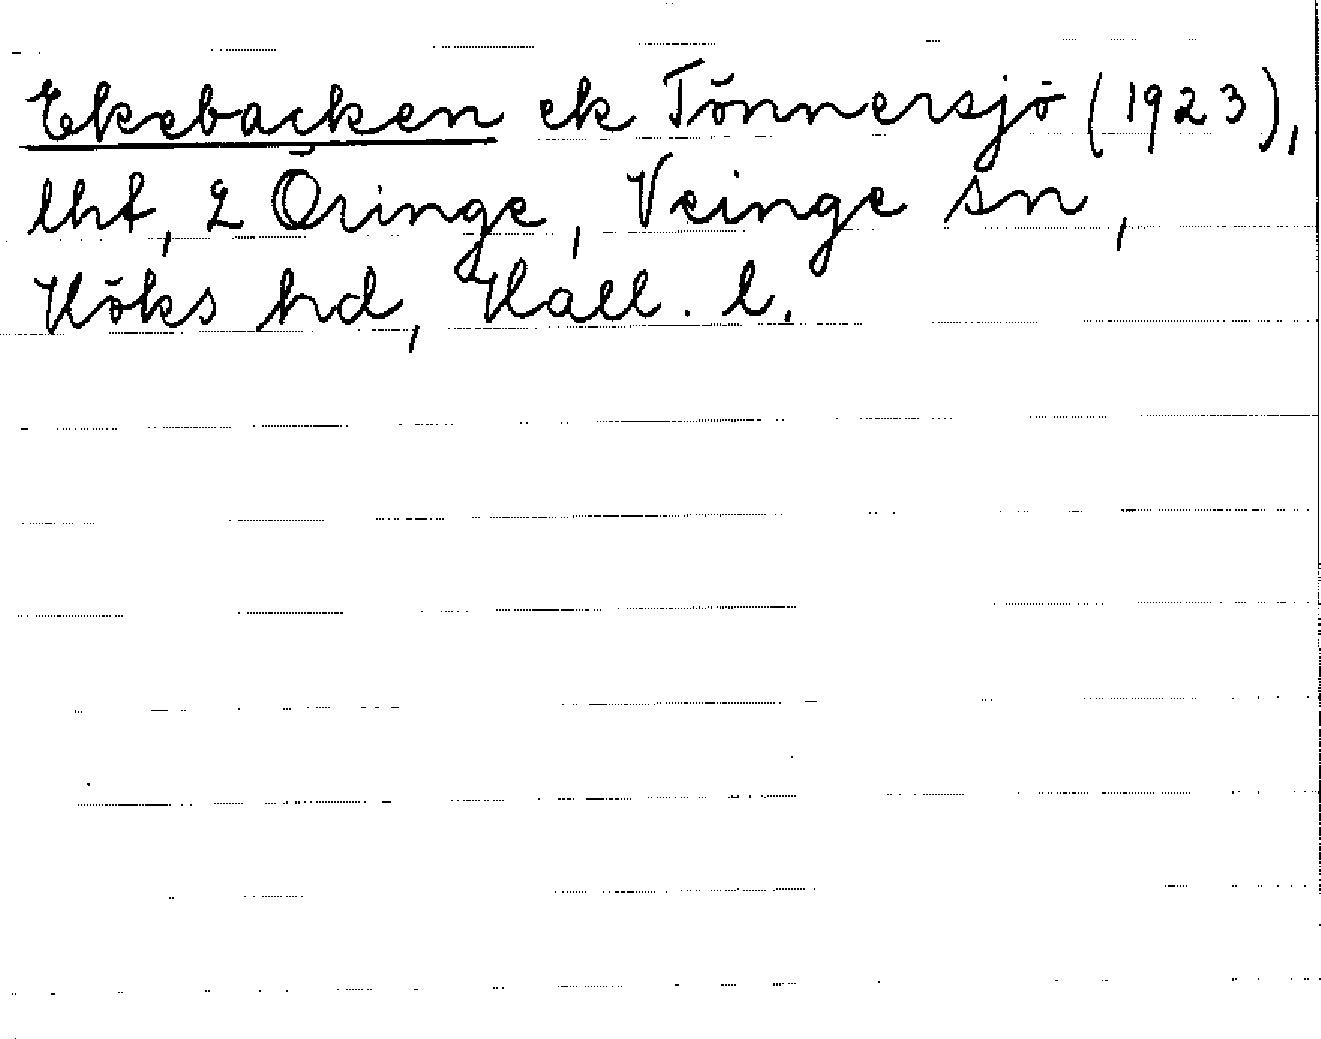 Ekebacken ek Tönnersjö (1923),
lht, 2 Öringe, Veinge sn,
Höks hd, Hall. l.